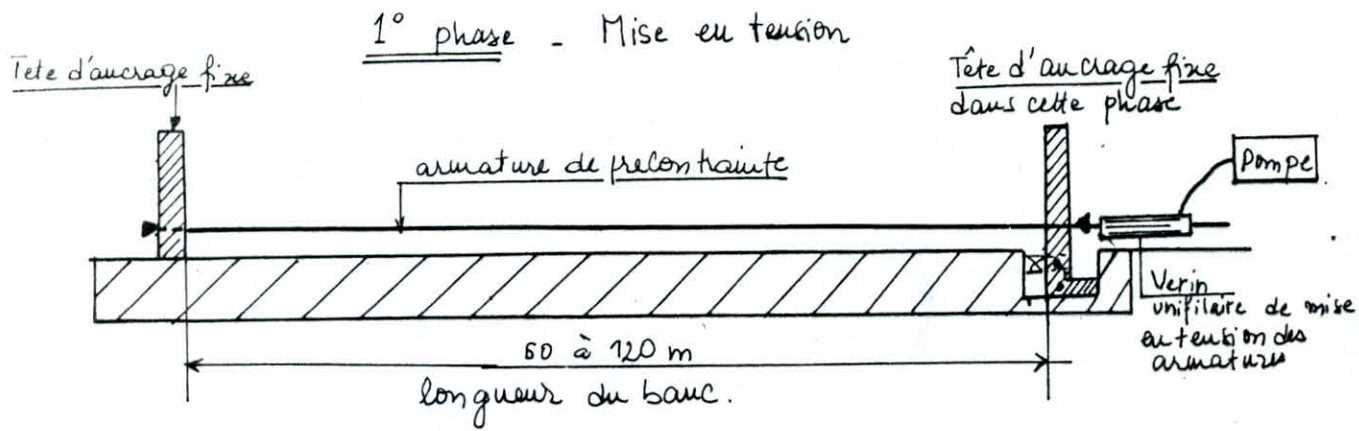 1° phase - Mise en tension
Tete d'ancrage fixe
Tête d'ancrage fixe
dans cette phase
Pompe
armature de precontrainte
Verin
unifilaire de mise
en tension des
armatures
60 à 120 m
longueur du banc.